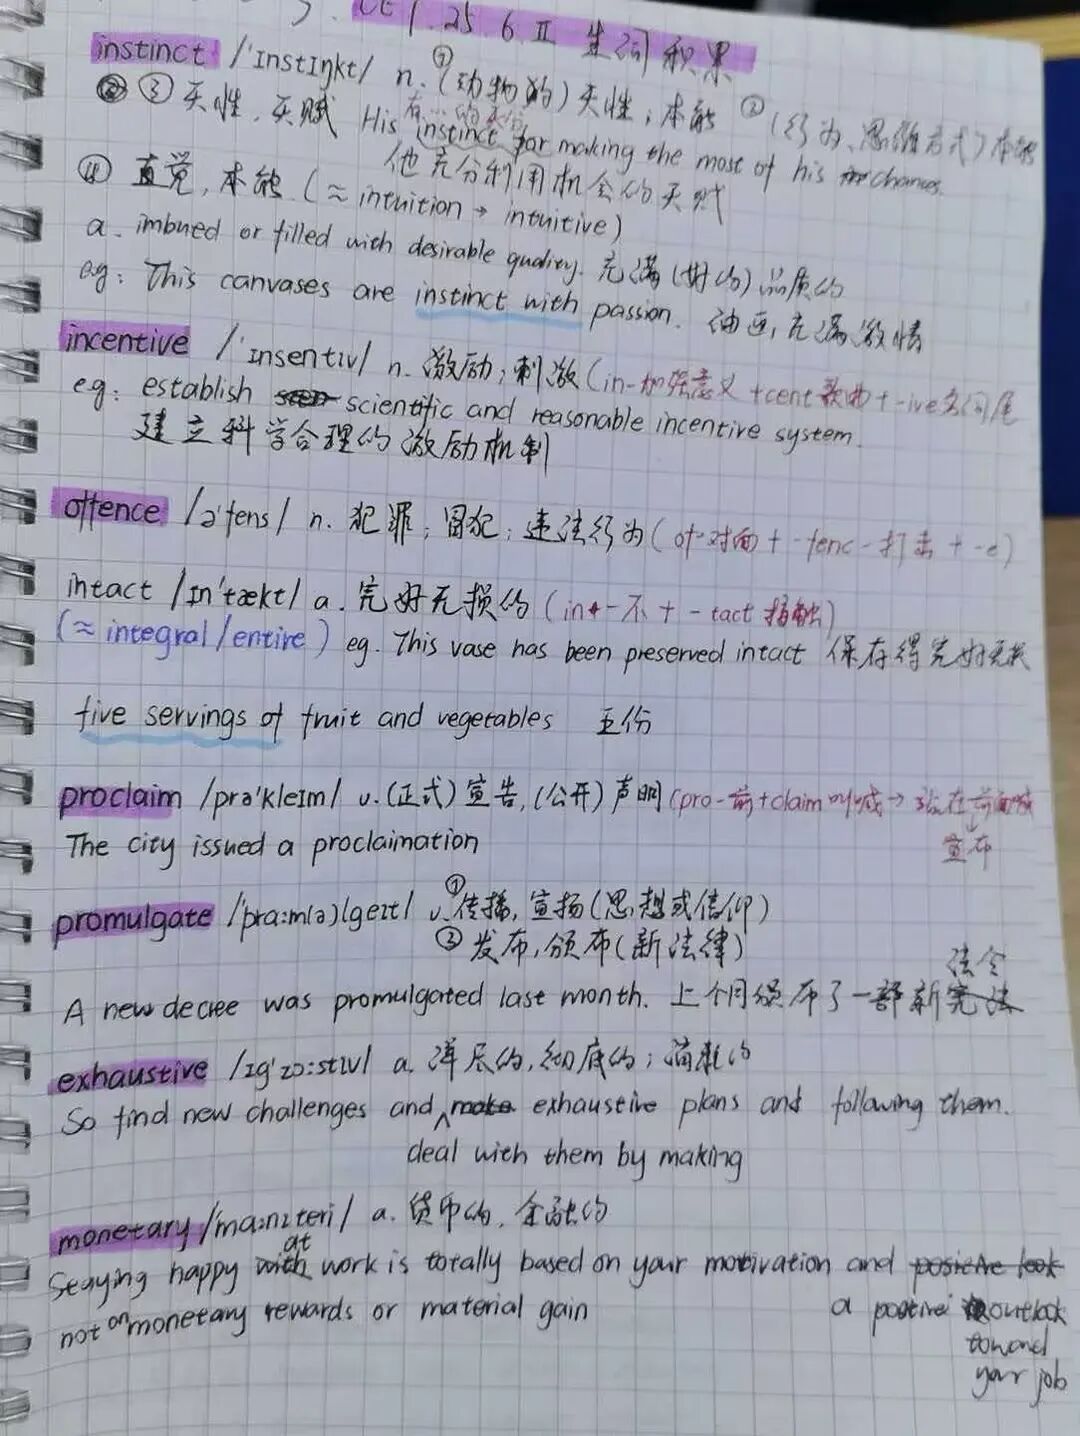 25.6.II 生词积累
instinct /'ɪnstɪŋkt/ n. ①(动物的)天性;本能 ②(行为、思维方式)本能
③天性、天赋 His instinct for making the most of his chances.
有…的天分
他充分利用机会的天赋
④直觉,本能 (≈ intuition → intuitive)
a. imbued or filled with desirable quality. 充满(好的)品质的
eg: This canvases are instinct with passion. 油画充满激情
incentive /'ɪnsentɪv/ n. 激励;刺激 (in-加强意义 + cent 歌曲 + -ive 名词尾
eg: establish scientific and reasonable incentive system.
建立科学合理的激励机制
offence /ə'fens/ n. 犯罪;冒犯;违法行为 (of-对面 + -fenc-打击 + -e)
intact /ɪn'tækt/ a. 完好无损的 (in-不 + -tact 接触)
(≈ integral/entire) eg. This vase has been preserved intact 保存得完好无损
five servings of fruit and vegetables 五份
proclaim /prə'kleɪm/ v. (正式)宣告,(公开)声明 (pro-前+claim 叫喊→站在前面喊
↓
宣布
The city issued a proclaimation
promulgate /'prɑ:m(ə)lgeɪt/ v. ①传播,宣扬(思想或信仰)
②发布,颁布(新法律)
法令
A new decree was promulgated last month. 上个月颁布了一部新宪法
exhaustive /ɪg'zɔ:stɪv/ a. 详尽的,彻底的;消耗的
So find new challenges and make exhaustive plans and following them.
deal with them by making
monetary /'mɑ:nɪteri/ a. 货币的,金融的
at
Staying happy with work is totally based on your motivation and positive look
not on monetary rewards or material gain a positive outlook
toward
your job